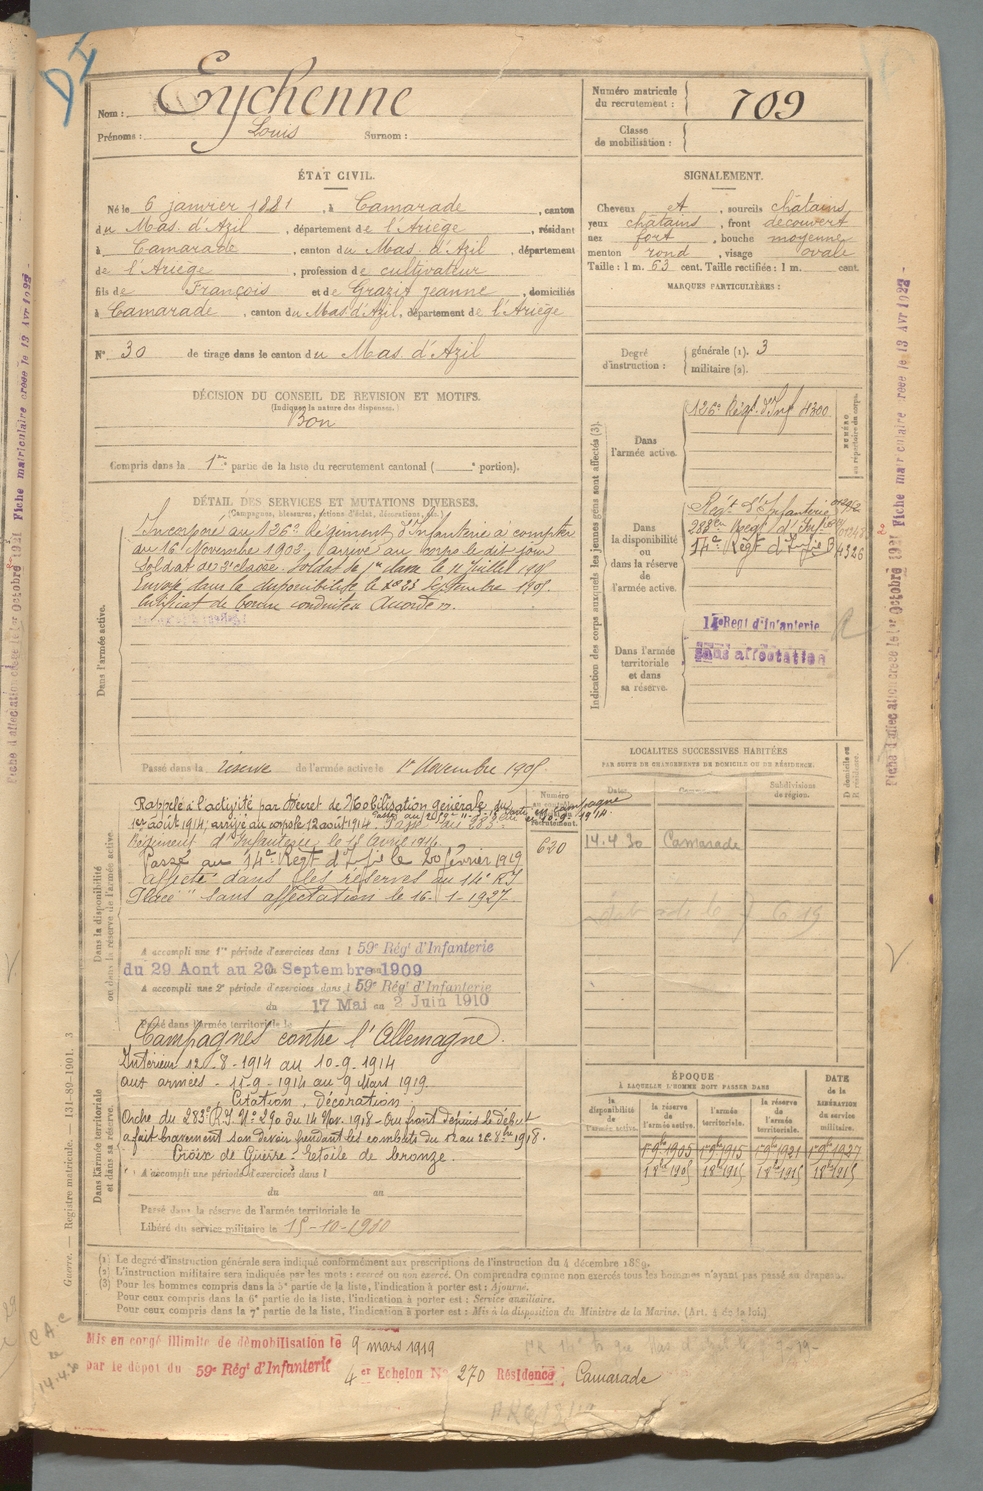 D I
Nom : Eychenne
Prénoms : Louis Surnom :
Numéro matricule du recrutement : 709
Classe de mobilisation :
ÉTAT CIVIL.
Né le 6 janvier 1881, à Camarade, canton
du Mas. d'Azil, département de l'Ariège, résidant
à Camarade, canton du Mas. d'Azil, département
de l'Ariège, profession de cultivateur
fils de François et de Grazit Jeanne, domiciliés
à Camarade, canton du Mas d'Azil, département de l'Ariège
N° 30 de tirage dans le canton du Mas. d'Azil
SIGNALEMENT.
Cheveux et, sourcils châtains
yeux châtains, front découvert
nez fort, bouche moyenne
menton rond, visage ovale
Taille : 1 m. 63 cent. Taille rectifiée : 1 m. cent.
MARQUES PARTICULIÈRES :
Degré d'instruction : générale (1). 3
militaire (2).
DÉCISION DU CONSEIL DE REVISION ET MOTIFS.
(Indiquer la nature des dispenses.)
Bon
Compris dans la 1re partie de la liste du recrutement cantonal ( e portion).
DÉTAIL DES SERVICES ET MUTATIONS DIVERSES.
(Campagnes, blessures, actions d'éclat, décorations, etc.)
Dans l'armée active.
Incorporé au 126e Régiment d'Infanterie à compter
au 16 Novembre 1902, arrivé au corps le dit jour
Soldat de 2e classe. Soldat de 1re classe le 11 Juillet 1905
Envoyé dans la disponibilité le 23 Septembre 1905.
Certificat de bonne conduite Accordé
Passé dans la réserve de l'armée active le 1er Novembre 1905
Indication des corps auxquels les jeunes gens sont affectés (3).
Dans l'armée active.
126e Régt. d'Inf 1300
NUMÉRO au répertoire du corps.
Dans la disponibilité ou dans la réserve de l'armée active.
Régt d'Infanterie
283e Régt d'Inf
14e Régt d'Ifie B 4326
Dans l'armée territoriale et dans sa réserve.
14e Régt d'Infanterie
Sans affectation
LOCALITÉS SUCCESSIVES HABITÉES
PAR SUITE DE CHANGEMENTS DE DOMICILE OU DE RÉSIDENCE.
Dates Communes Subdivisions de région. D domicile ou R résidence.
14.4.30 Camarade
Dans la disponibilité ou dans la réserve de l'armée active.
Rappelé à l'activité par Décret de Mobilisation générale du
1er août 1914, arrivé au corps le 12 août 1914. Parti en campagne le 10-9-1914.
Régiment d'Infanterie le 15 avril 1916.
Passé au 14e Régt d'Ifie le 20 février 1919
affecté dans les réserves au 14e R.I
Placé "Sans affectation le 16-1-1927
Numéro au contrôle spécial du recrutement.
620
A accompli une 1re période d'exercices dans l 59e Régt d'Infanterie
du 29 Aout au 20 Septembre 1909
A accompli une 2e période d'exercices dans l 59e Régt d'Infanterie
du 17 Mai au 2 Juin 1910
Passé dans l'armée territoriale le
Campagnes contre l'Allemagne.
Dans l'armée territoriale et dans sa réserve.
Intérieur 12-8-1914 au 10-9-1914
aux armées - 11-9-1914 au 9 Mars 1919.
Citation, décoration.
Ordre du 283e R.I. N° 290 du 14 Nov. 1918 - Au front depuis le début
a fait bravement son devoir pendant les combats du
Croix de Guerre. Etoile de bronze.
A accompli une période d'exercices dans l
du au
Passé dans la réserve de l'armée territoriale le
Libéré du service militaire le 15-10-1910
ÉPOQUE
À LAQUELLE L'HOMME DOIT PASSER DANS
la disponibilité de l'armée active. la réserve de l'armée active. l'armée territoriale. la réserve de l'armée territoriale.
DATE de la LIBÉRATION du service militaire.
1 9bre 1905 1 9bre 1915 1 9bre 1921 1 9bre 1927
(1) Le degré d'instruction générale sera indiqué conformément aux prescriptions de l'instruction du 4 décembre 1889.
(2) L'instruction militaire sera indiquée par les mots : exercé ou non exercé. On comprendra comme non exercés tous les hommes n'ayant pas passé au drapeau.
(3) Pour les hommes compris dans la 5e partie de la liste, l'indication à porter est : Ajourné.
Pour ceux compris dans la 6e partie de la liste, l'indication à porter est : Service auxiliaire.
Pour ceux compris dans la 7e partie de la liste, l'indication à porter est : Mis à la disposition du Ministre de la Marine. (Art. 4 de la loi.)
Mis en congé illimité de démobilisation le 9 mars 1919
par le dépôt du 59e Régt d'Infanterie 4er Echelon N° 270 Résidence Camarade
C.A.C
14.4.30
Guerre. — Registre matricule. — 131-89-1901. 3
Fiche d'affectation créée le 1er Octobre 1921 Fiche matriculaire créée le 13 Avr 1922
Fiche d'affectation créée le 1er Octobre 1921 Fiche matriculaire créée le 13 Avr 1922